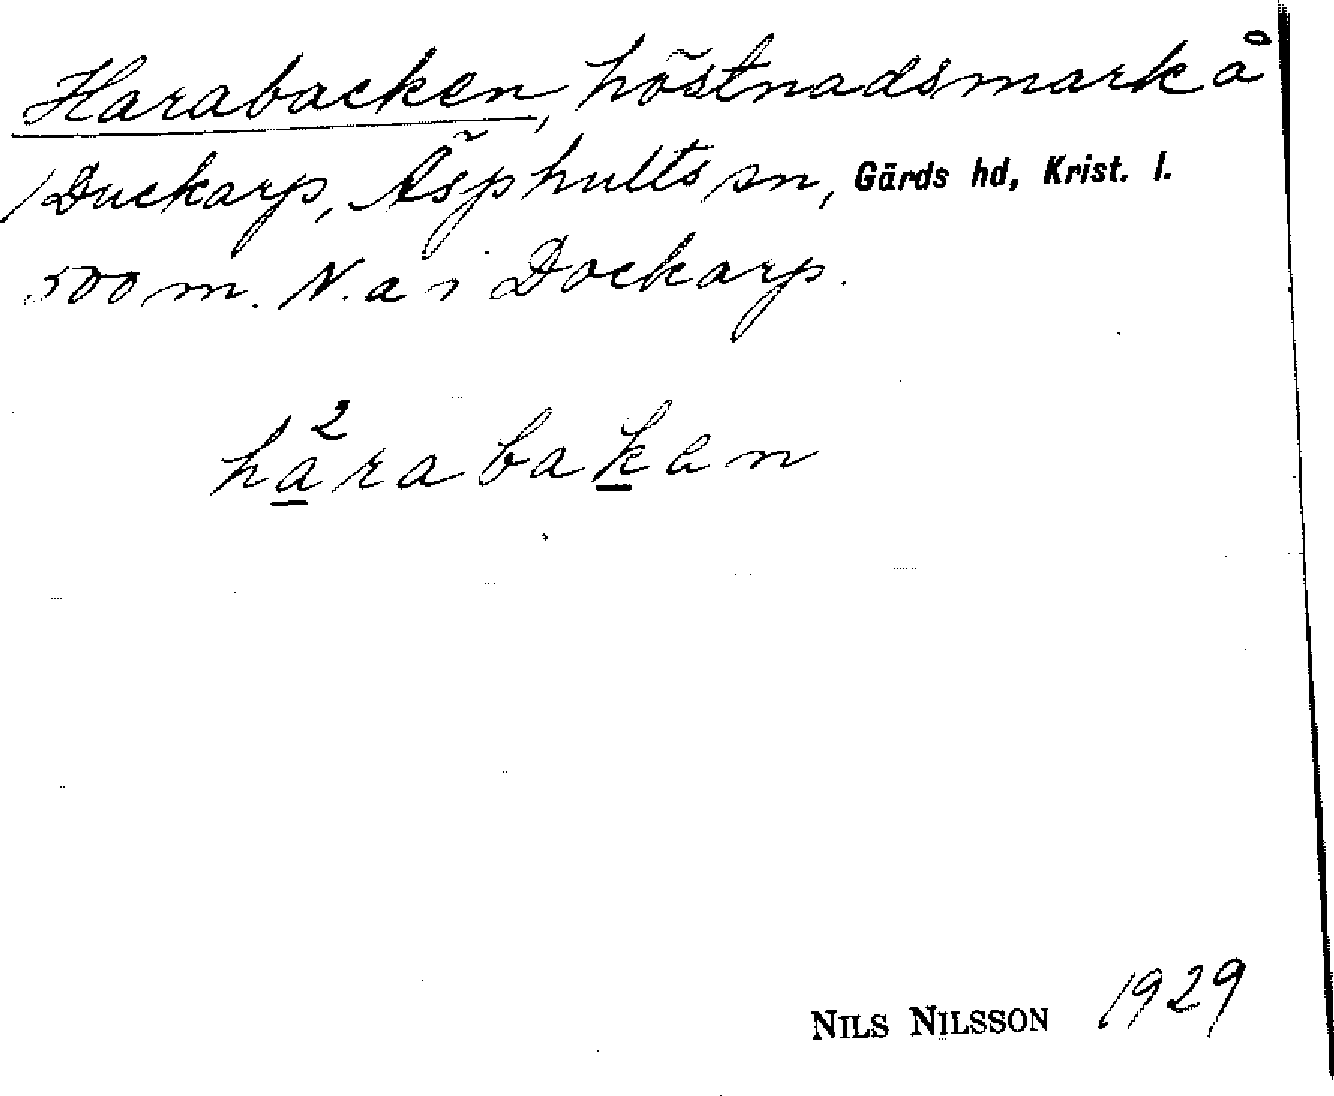 Harabacken, höstnadsmark å
Duckarp, Äsphults sn, Gärds hd, Krist. l.
500 m. N. a i Dockarp.
ha²rabakan
NILS NILSSON 1929